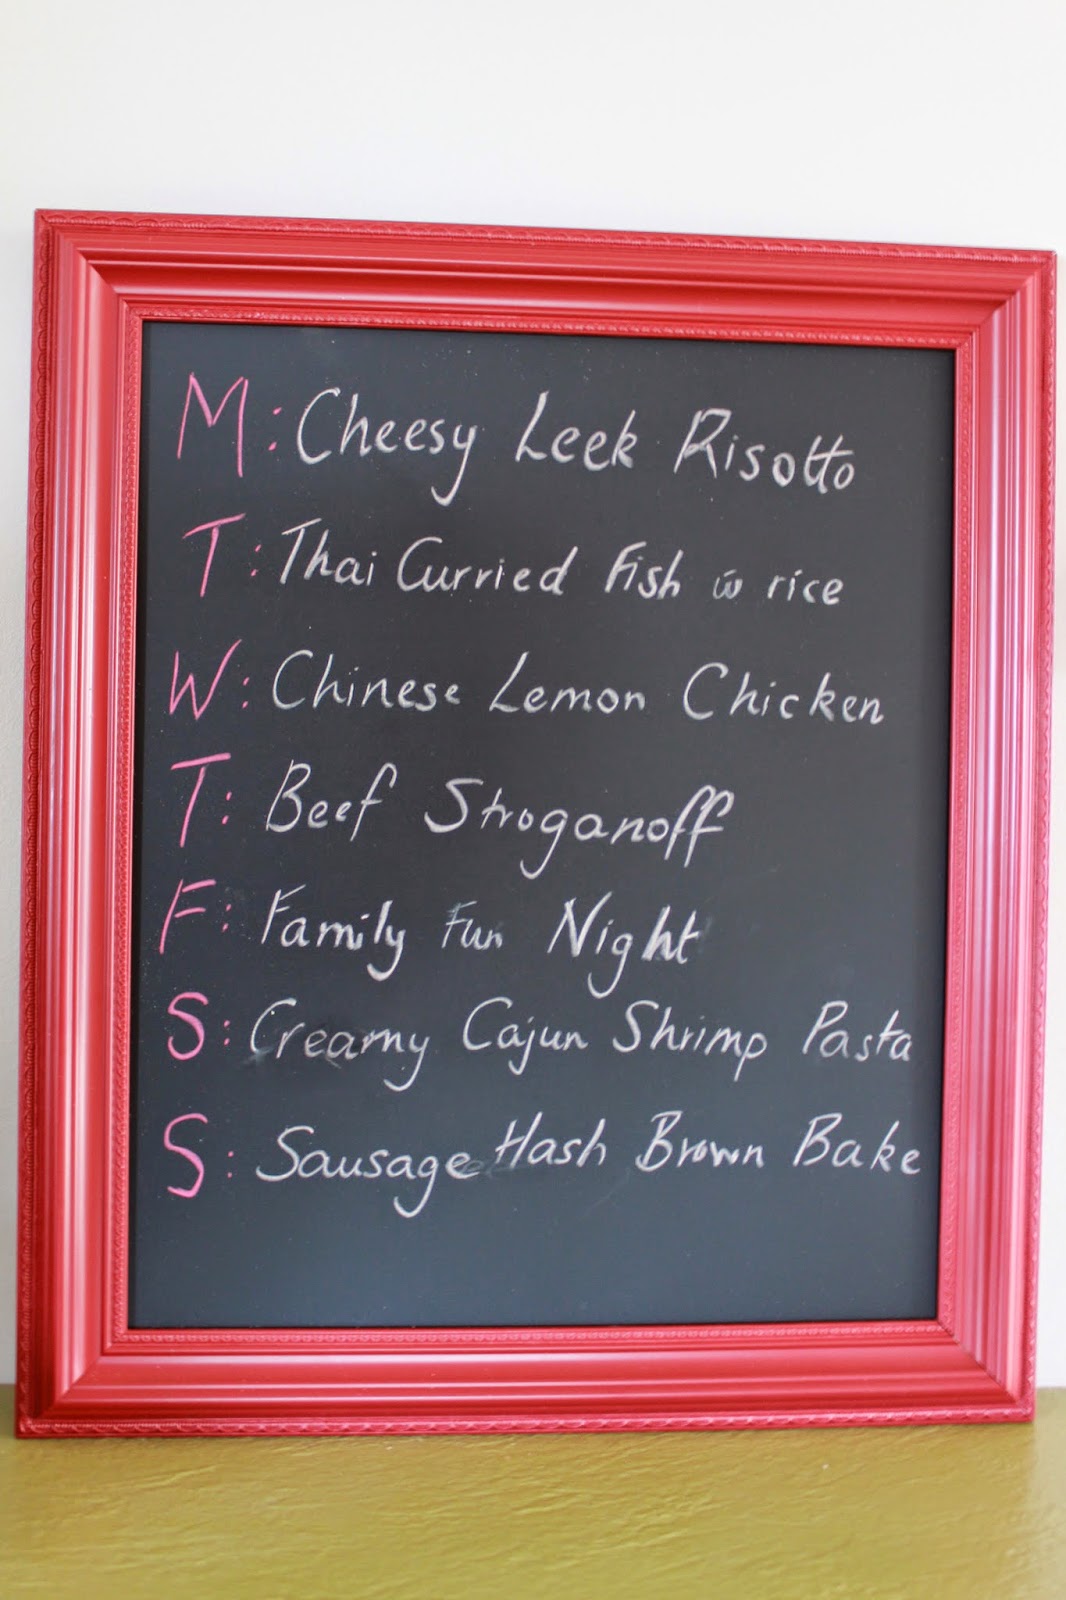 M: Cheesy Leek Risotto
T: Thai Curried Fish w̄ rice
W: Chinese Lemon Chicken
T: Beef Stroganoff
F: Family Fun Night
S: Creamy Cajun Shrimp Pasta
S: Sausage Hash Brown Bake